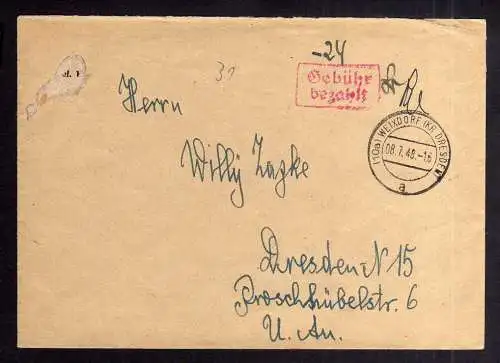 -24
31
Gebühr
bezahlt
(10a) WEIXDORF (KR. DRESDEN)
08.7.48.-16
a
Herrn
Willy Zazke
Dresden N 15
Proschhübelstr. 6
U. An.